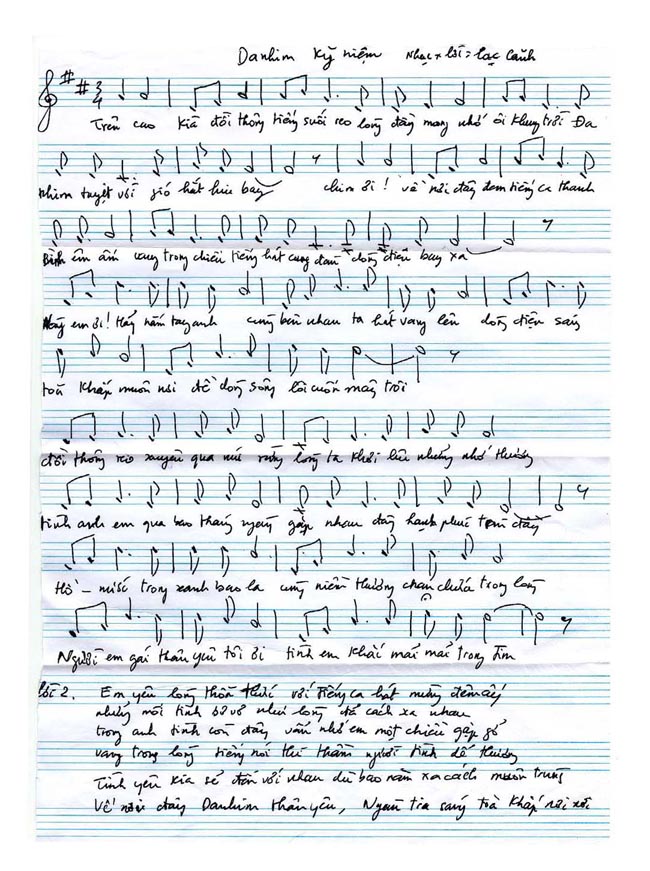 Danhim Kỷ niệm Nhạc x lời = Lạc Cảnh
3
4
Trên cao kia đồi thông tiếng suối reo lòng đầy mang nhớ ôi khung trời Đa
nhim tuyệt vời gió hát hiu bay chim ơi! về nơi đây đem tiếng ca thanh
bình êm ấm vang trong chiều tiếng hát cung đàn dòng điện bay xa
Nàng em ơi! Hãy nắm tay anh cùng bên nhau ta hát vang lên dòng điện sáng
toả khắp muôn nơi để dòng sông lôi cuốn mây trôi
đồi thông reo xuyên qua núi rừng lòng ta khơi lên những nhớ thương
tình anh em qua bao tháng ngày gặp nhau đây hạnh phúc tràn đầy
Hồ - nước trong xanh bao la cùng niềm thương chan chứa trong lòng
Người em gái thân yêu tôi ơi tình em khắc mãi mãi trong tim
Lời 2. Em yêu lòng thổn thức với tiếng ca hát mừng đêm ấy
những mối tình bơ vơ như lòng đã cách xa nhau
trong anh tình còn đây vẫn nhớ em một chiều gặp gỡ
vang trong lòng tiếng nói thì thầm người tình dễ thương
Tình yêu kia sẽ đến với nhau dù bao năm xa cách muôn trùng
Về nơi đây Danhim thân yêu, Nguồn tia sáng toả khắp nơi nơi